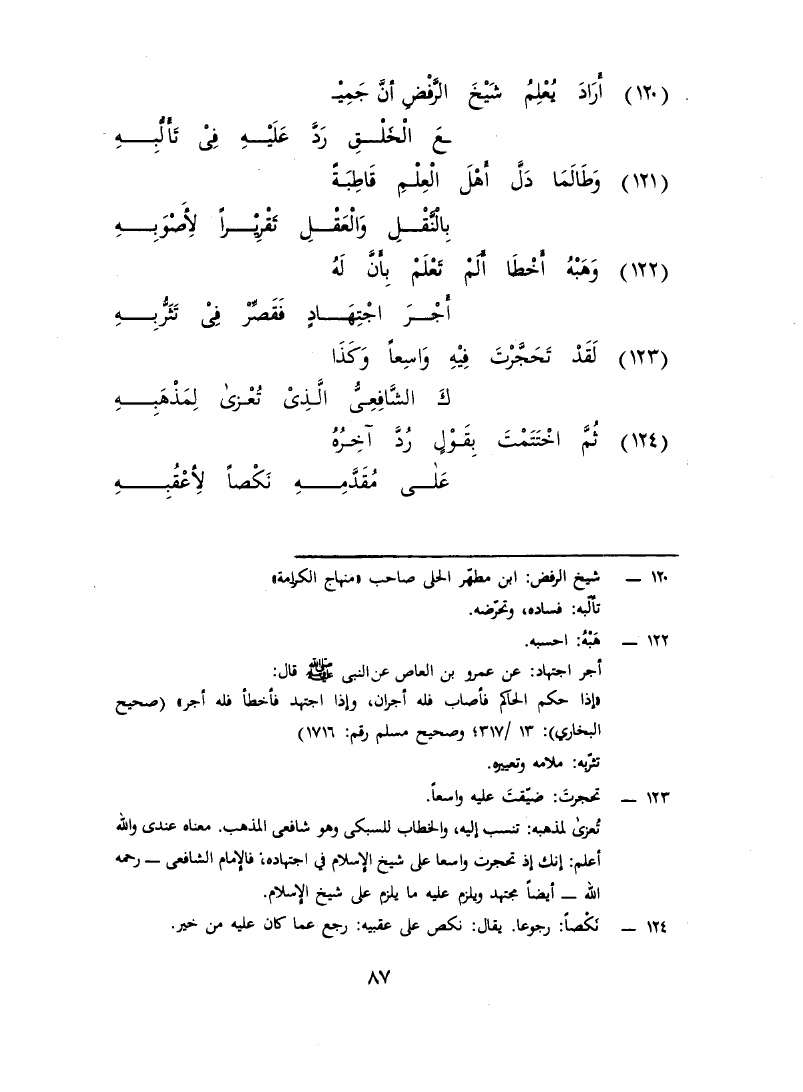 (١٢٠) أَرَادَ يُعْلِمُ شَيْخَ الرَّفْضِ أنَّ جَمِيْـ
ـعَ الْخَلْـقِ رَدَّ عَلَيْـهِ فِىْ تَأَلُّبِـهِ
(١٢١) وَطَالَمَا دَلَّ أَهْلَ الْعِلْـمِ قَاطِبَـةً
بِالنَّقْـلِ وَالْعَقْـلِ تَقْرِيْـراً لِأَصْوَبِـهِ
(١٢٢) وَهَبْهُ أَخْطَا أَلَمْ تَعْلَمْ بِأَنَّ لَهُ
أَجْـرَ اجْتِهَـادٍ فَقَصِّرْ فِىْ تَثَرُّبِـهِ
(١٢٣) لَقَدْ تَحَجَّرْتَ فِيْهِ وَاسِعاً وَكَذَا
كَ الشَّافِعِىُّ الَّـذِىْ تُعْـزىٰ لِمَذْهَبِـهِ
(١٢٤) ثُمَّ اخْتَتَمْتَ بِقَـوْلٍ رُدَّ آخِـرُهُ
عَلٰـى مُقَدَّمِـهِ نَكْصاً لِأَعْقُبِـهِ
١٢٠ — شيخ الرفض: ابن مطهّر الحلى صاحب «منهاج الكرامة»
تألّبه: فساده، وتحرّضه.
١٢٢ — هَبْهُ: احسبه.
أجر اجتهاد: عن عمرو بن العاص عن النبى ﷺ قال:
«إذا حكم الحاكم فأصاب فله أجران، وإذا اجتهد فأخطأ فله أجر» (صحيح
البخاري): ١٣ /٣١٧؛ وصحيح مسلم رقم: ١٧١٦)
تثرّبه: ملامه وتعييره.
١٢٣ — تحجرتَ: ضيّقتَ عليه واسعاً.
تُعزىٰ لمذهبه: تنسب إليه، والخطاب للسبكى وهو شافعى المذهب. معناه عندى والله
أعلم: إنك إذ تحجرت واسعا على شيخ الإسلام في اجتهاده؛ فالإمام الشافعى — رحمه
الله — أيضاً مجتهد ويلزم عليه ما يلزم على شيخ الإسلام.
١٢٤ — نَكْصاً: رجوعا. يقال: نكص على عقبيه: رجع عما كان عليه من خير.
٨٧